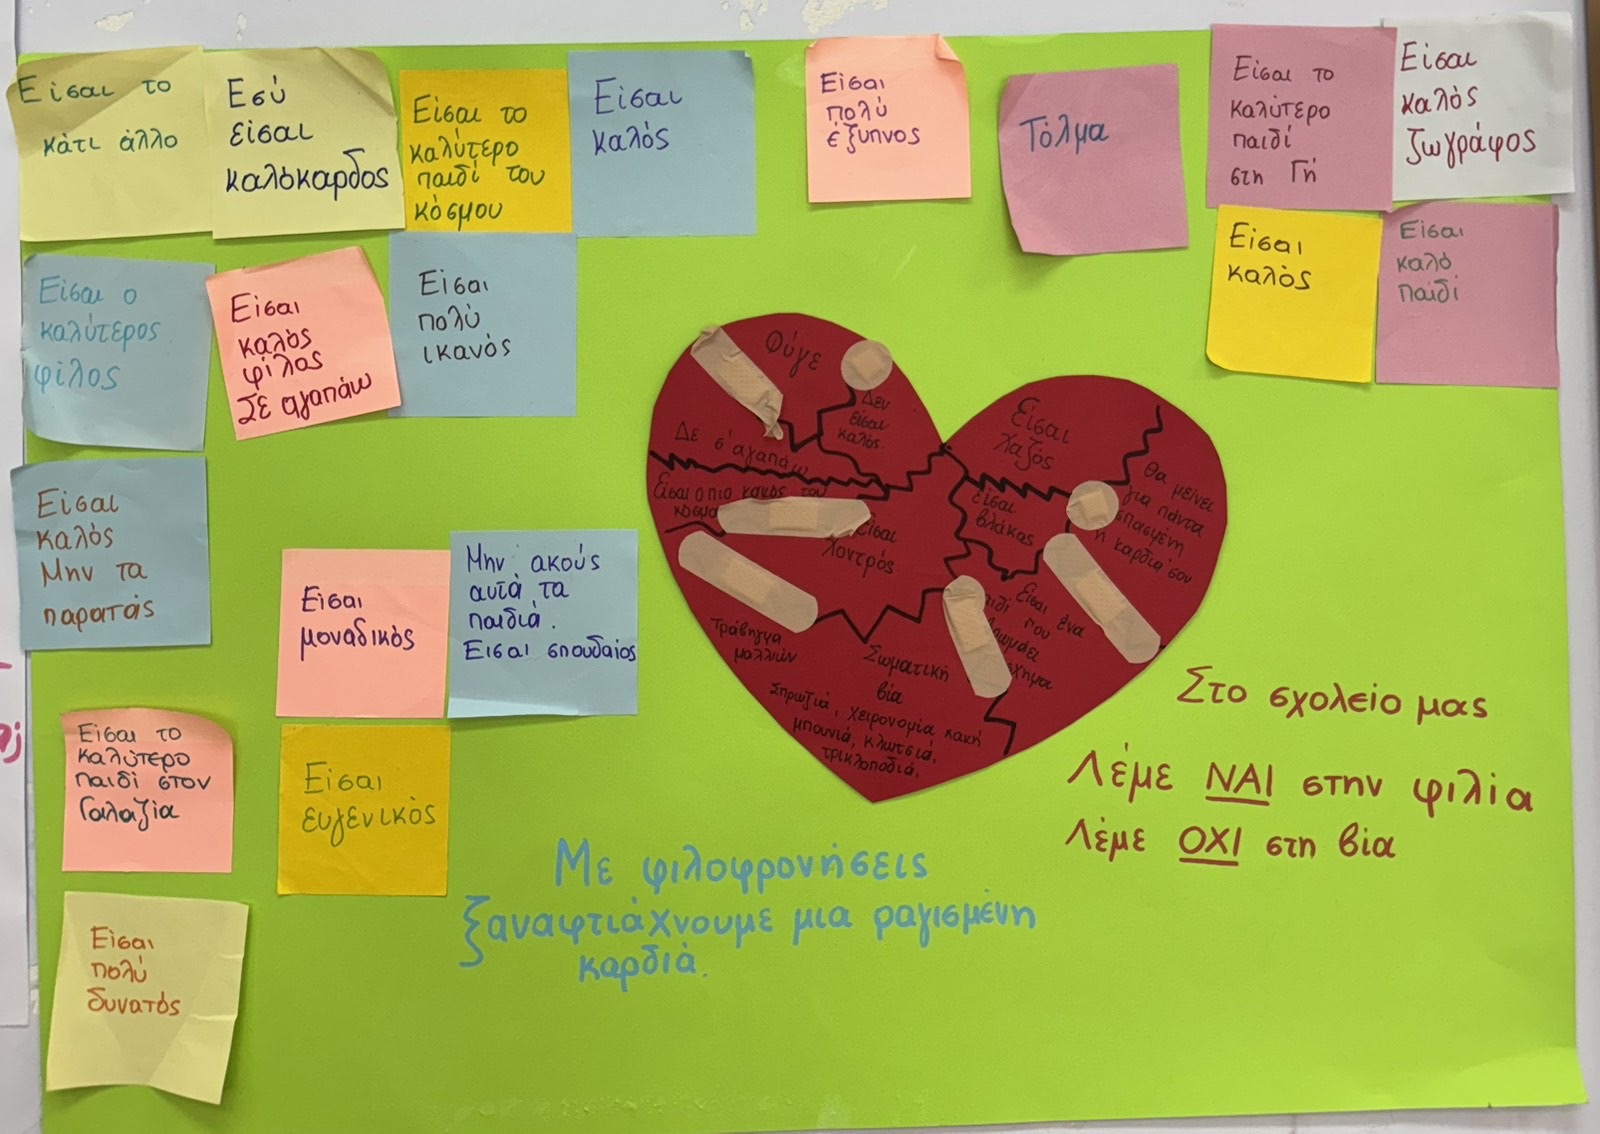 Είσαι το
κάτι άλλο
Εσύ
είσαι
καλόκαρδος
Είσαι το
καλύτερο
παιδί του
κόσμου
Είσαι
καλός
Είσαι
πολύ
έξυπνος
Τόλμα
Είσαι το
καλύτερο
παιδί
στη Γή
Είσαι
καλός
ζωγράφος
Είσαι ο
καλύτερος
φίλος
Είσαι
καλός
φίλος
Σε αγαπάω
Είσαι
πολύ
ικανός
Είσαι
καλός
Είσαι
καλό
παιδί
Είσαι
καλός
Μην τα
παρατάς
Είσαι
μοναδικός
Μην ακούς
αυτά τα
παιδιά.
Είσαι σπουδαίος
Είσαι το
καλύτερο
παιδί στον
Γαλαξία
Είσαι
ευγενικός
Είσαι
πολύ
δυνατός
Φύγε
Δεν
είσαι
καλός
Δε σ'αγαπάω
Είσαι ο πιο κακός του
Είσαι
χοντρός
Είσαι
χαζός
Είσαι
βλάκας
Θα μείνει
για πάντα
σπασμένη
η καρδιά σου
Είσαι ένα
που
Τράβηγμα
μαλλιών
Σωματική
βία
Σπρωξιά, χειρονομία κακή
μπουνιά, κλωτσιά,
τρικλοποδιά,
Στο σχολείο μας
Λέμε ΝΑΙ στην φιλία
Λέμε ΟΧΙ στη βία
Με φιλοφρονήσεις
ξαναφτιάχνουμε μια ραγισμένη
καρδιά.